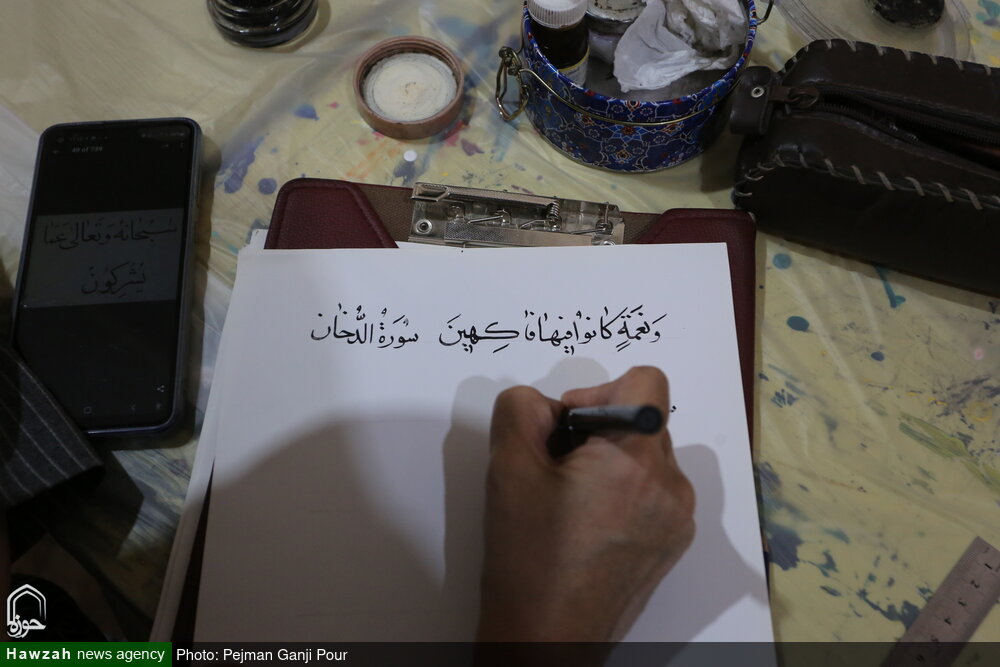 49 of 739
سُبْحَانَهُ وَتَعَالَى عَمَّا
يُشْرِكُونَ
وَنَعْمَةٍ كَانُوا فِيهَا فَاكِهِينَ سُورَةُ الدُّخَان
حوزه
Hawzah news agency Photo: Pejman Ganji Pour